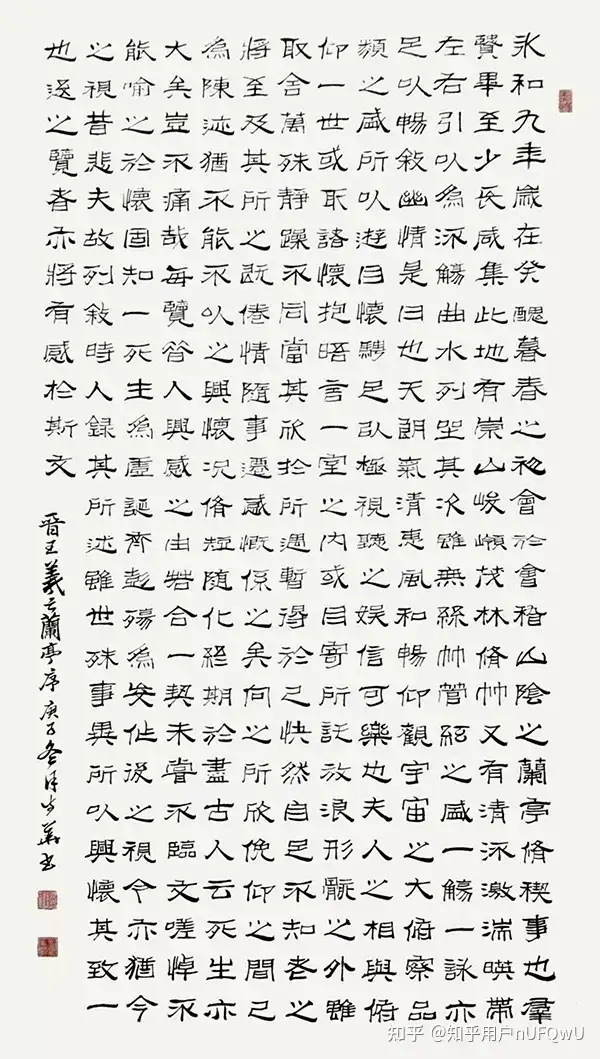 永和九年歲在癸醜暮春之初會於會稽山陰之蘭亭脩禊事也羣
賢畢至少長咸集此地有崇山峻嶺茂林脩竹又有清流激湍暎帶
左右引以為流觴曲水列坐其次雖無絲竹管絃之盛一觴一詠亦
足以暢敘幽情是日也天朗氣清惠風和暢仰觀宇宙之大俯察品
類之盛所以遊目懷騁足以極視聽之娛信可樂也夫人之相與俯
仰一世或取諸懷抱晤言一室之內或因寄所託放浪形骸之外雖
取舍萬殊靜躁不同當其欣於所遇暫得於己快然自足不知老之
將至及其所之既倦情隨事遷感慨係之矣向之所欣俛仰之間已
為陳迹猶不能不以之興懷況脩短隨化終期於盡古人云死生亦
大矣豈不痛哉每覽昔人興感之由若合一契未嘗不臨文嗟悼不
能喻之於懷固知一死生為虛誕齊彭殤為妄作後之視今亦猶今
之視昔悲夫故列敘時人錄其所述雖世殊事異所以興懷其致一
也後之覽者亦將有感於斯文
晉王羲之蘭亭序庚子冬
知乎 @知乎用户nUFQwU